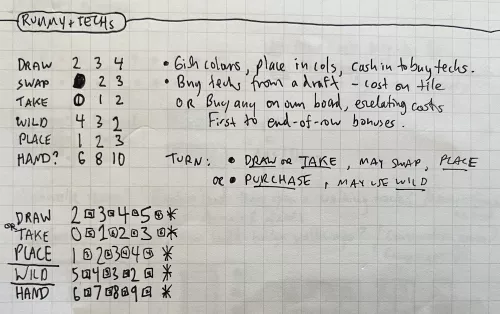 RUMMY + TECHS
DRAW 2 3 4
SWAP 2 3
TAKE 0 1 2
WILD 4 3 2
PLACE 1 2 3
HAND? 6 8 10
• Gish colours, place in cols, cash in to buy techs.
• Buy techs from a draft - cost on tile
OR Buy any on own board, escalating costs
First to end-of-row bonuses.
TURN: • DRAW or TAKE, MAY SWAP, PLACE
or • PURCHASE, MAY USE WILD
DRAW 2 3 4 5 *
OR TAKE 0 1 2 3 *
PLACE 1 2 3 4 *
WILD 5 4 3 2 *
HAND 6 7 8 9 *